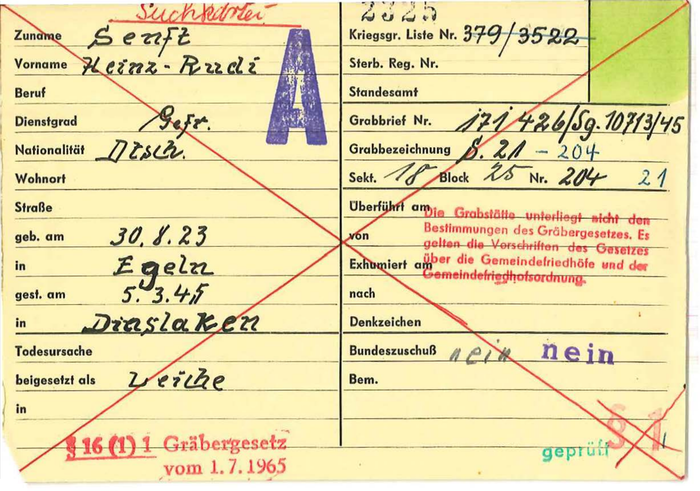 Suchkartei
Zuname Senft
Vorname Heinz-Rudi
Beruf
Dienstgrad Gefr.
Nationalität Dtsch.
Wohnort
Straße
geb. am 30.8.23
in Egeln
gest. am 5.3.45
in Dinslaken
Todesursache
beigesetzt als Leiche
in
§ 16 (1) 1 Gräbergesetz
vom 1.7.1965
A
2325
Kriegsgr. Liste Nr. 379/3522
Sterb. Reg. Nr.
Standesamt
Grabbrief Nr. 171 426/Sg. 10713/45
Grabbezeichnung S. 21 - 204
Sekt. 18 Block 25 Nr. 204 21
Überführt am
von
Exhumiert am
nach
Die Grabstätte unterliegt nicht den
Bestimmungen des Gräbergesetzes. Es
gelten die Vorschriften des Gesetzes
über die Gemeindefriedhöfe und der
Gemeindefriedhofsordnung.
Denkzeichen
Bundeszuschuß nein nein
Bem.
geprüft
§ 1